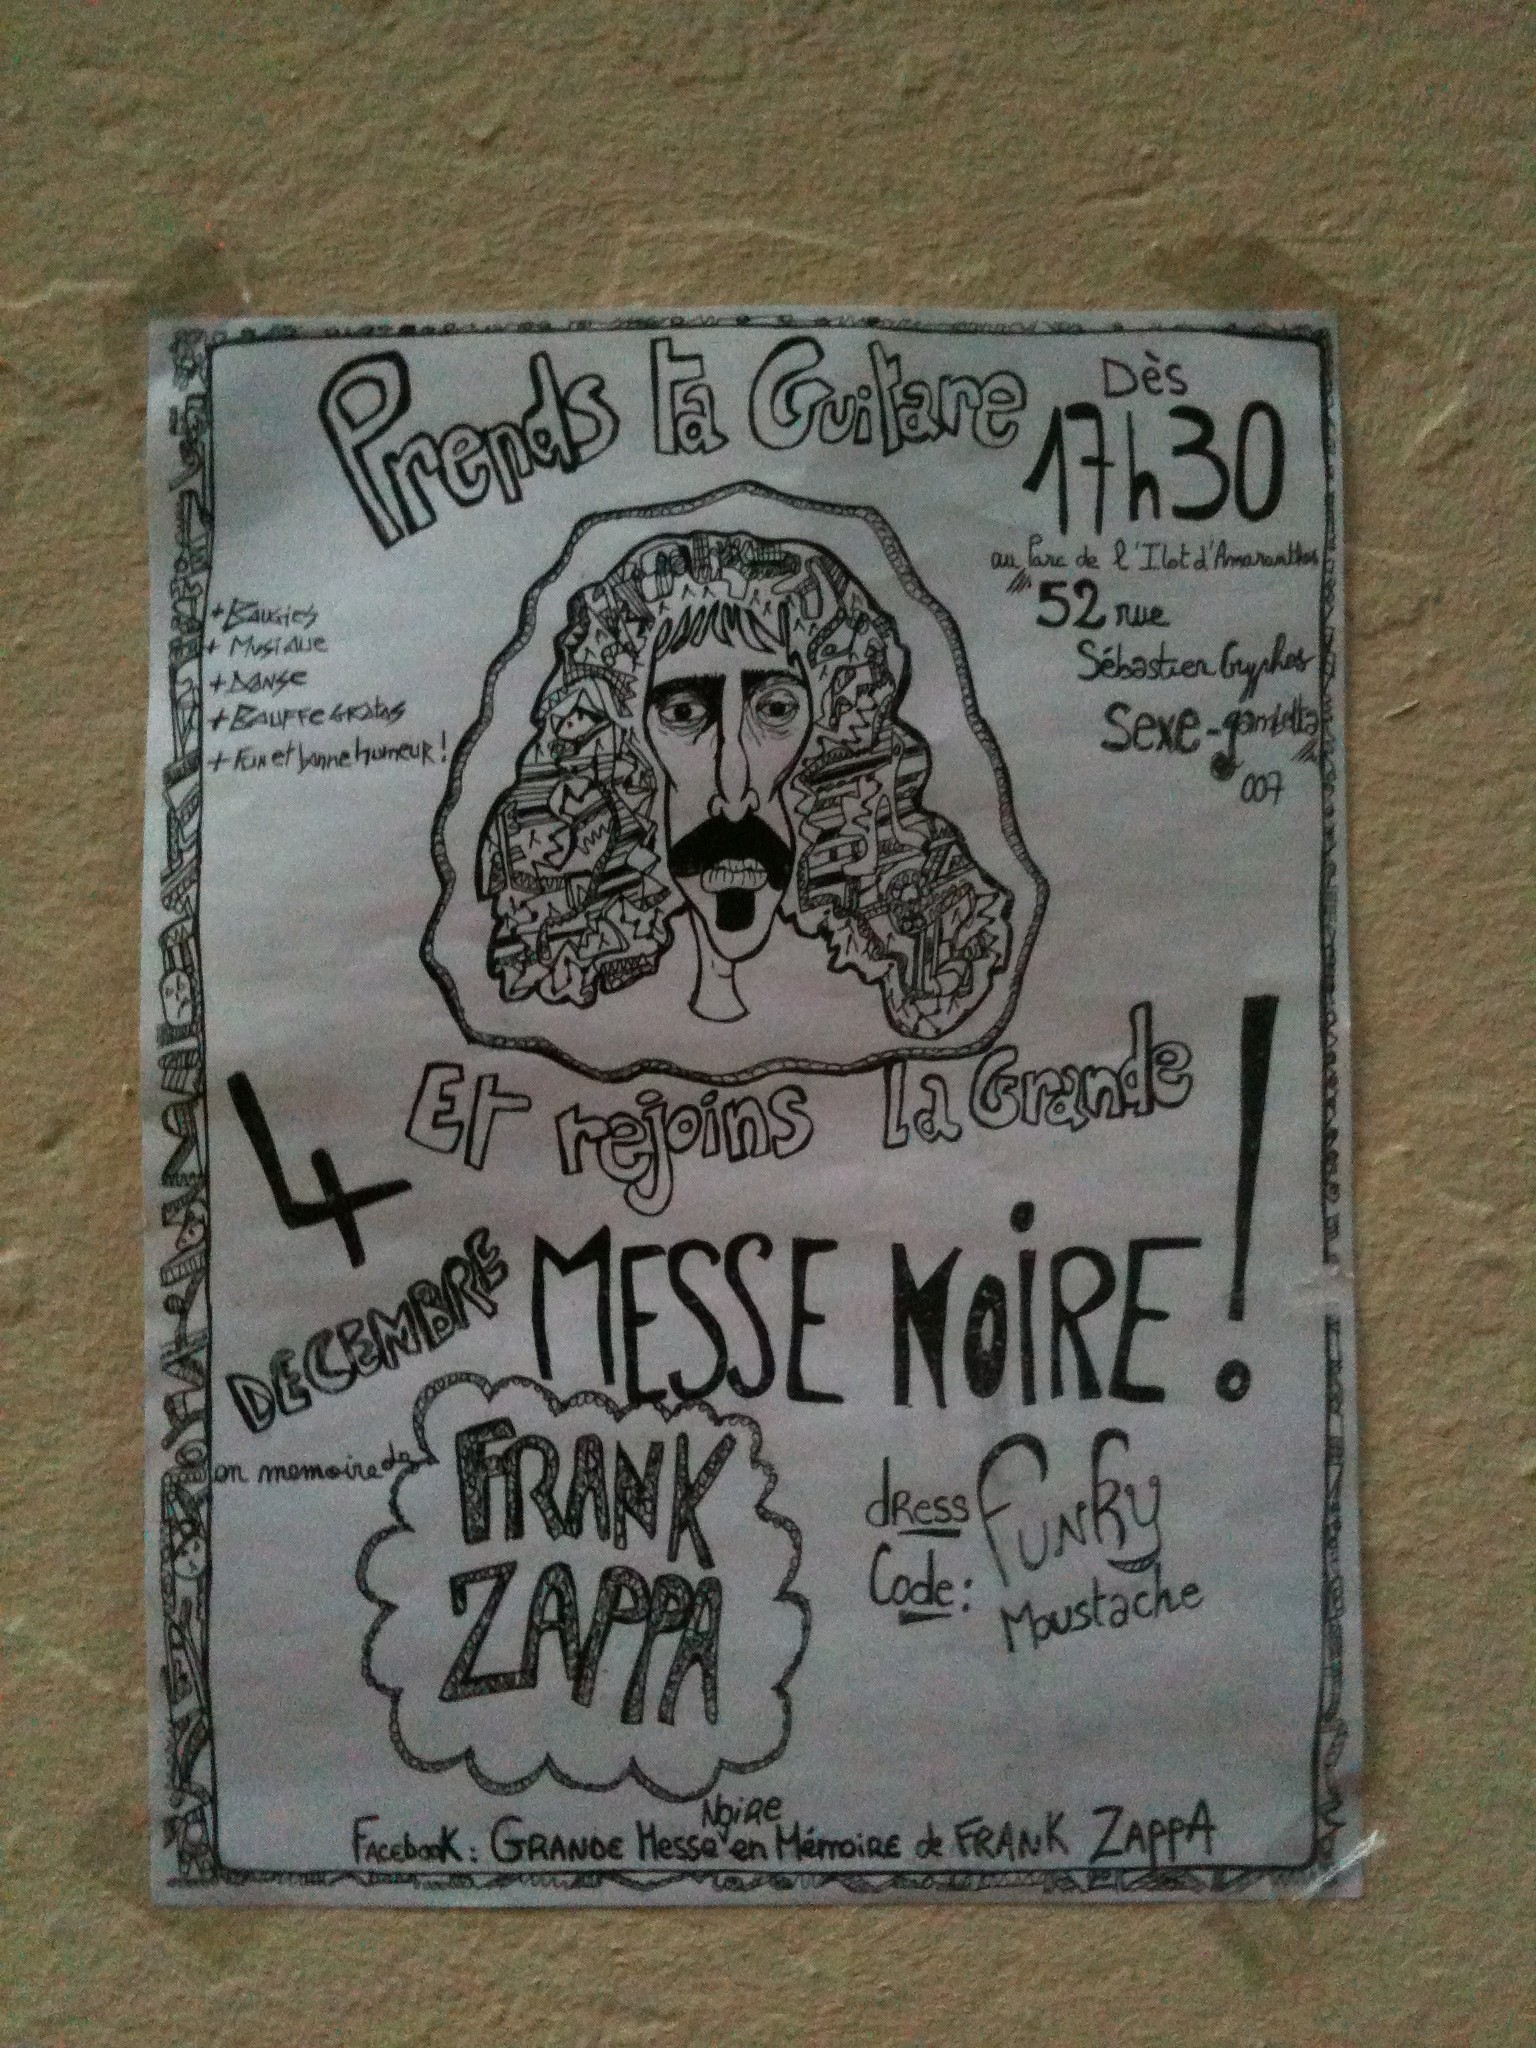 Prends ta Guitare
Dès
17h30
au Parc de l'Ilot d'Amaranthes
52 rue
Sébastien Gryphes
Sexe-gambetta
007
+ Bougies
+ Musique
+ Danse
+ Bouffe Gratos
+ Fun et bonne humeur !
Et rejoins la Grande
4
DECEMBRE
MESSE NOIRE !
en memoire de
FRANK
ZAPPA
dRess
Code :
Funky
Moustache
Noire
Facebook : GRANDE Messe en Mémoire de FRANK ZAPPA